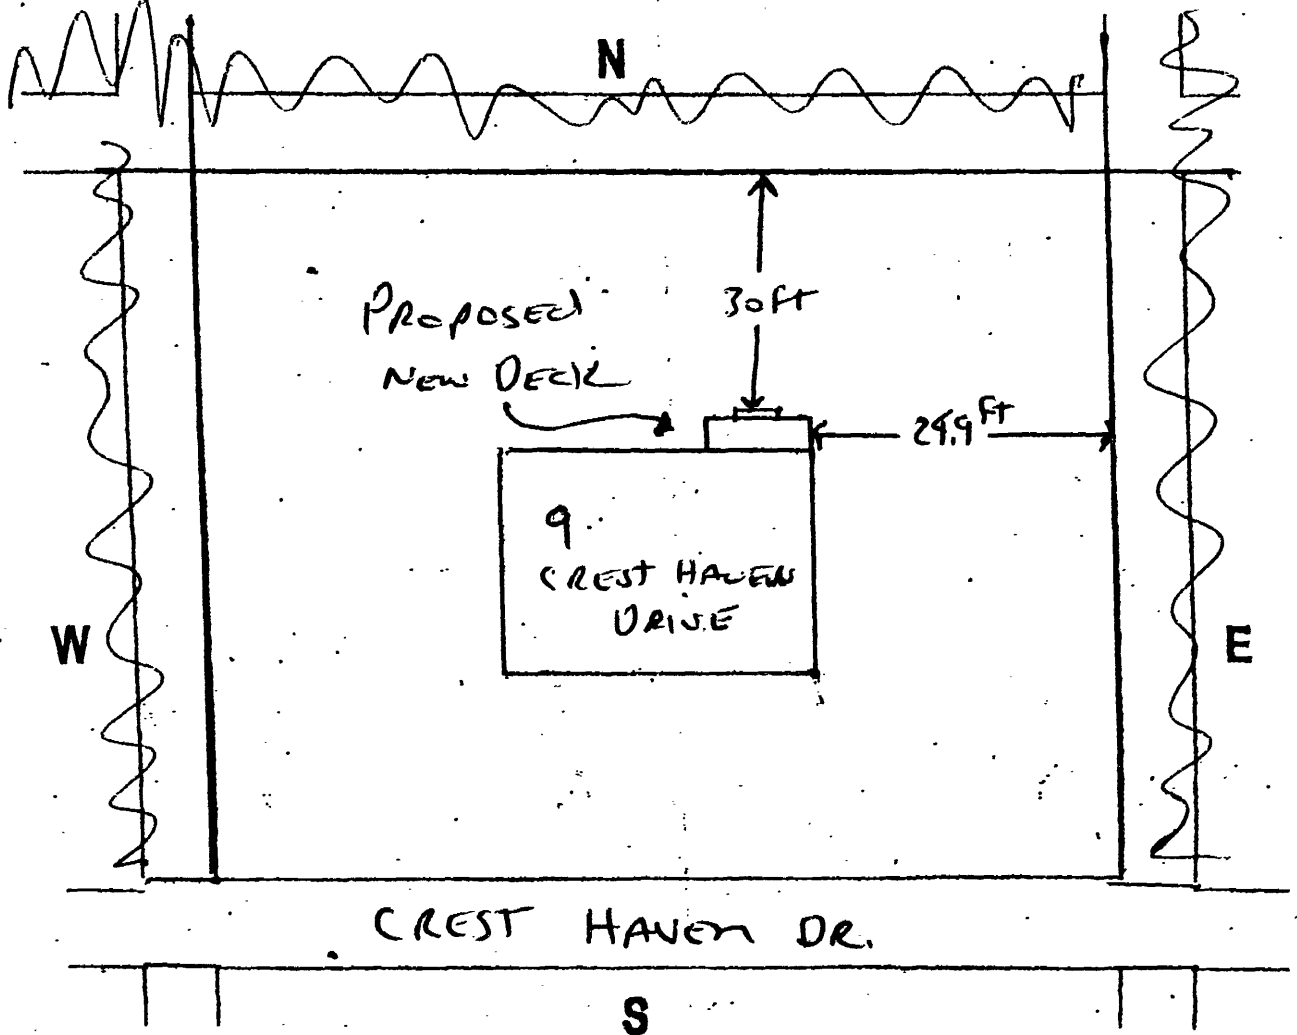 N
PROPOSED
NEW DECK
30 ft
Ft
9
CREST HAVEN
DRIVE
W
E
CREST HAVEN DR.
S